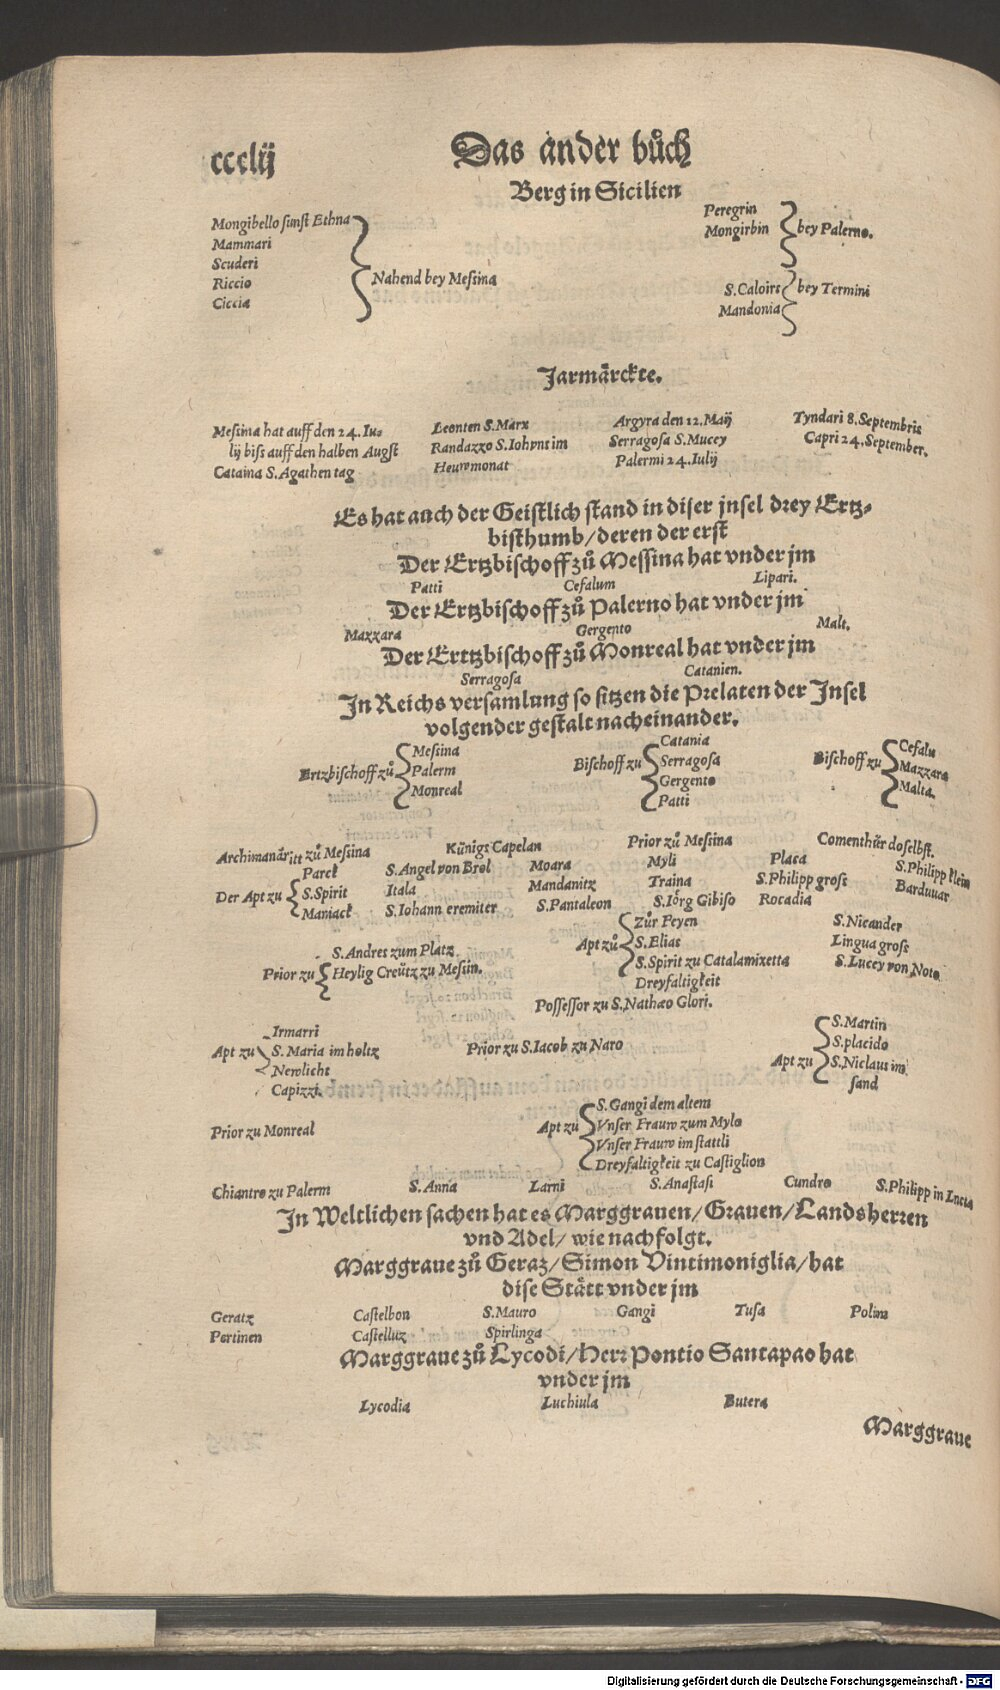 ccclij
Das ander bůch
Berg in Sicilien
Mongibello sunst Ethna
Mammari
Scuderi
Riccio
Ciccia
Nahend bey Messina
Peregrin
Mongirbin
bey Palerno.
S. Caloire
Mandonia
bey Termini
Jarmärckte.
Messina hat auff den 24. Iu-
lij biss auff den halben Augst
Cataina S. Agathen tag
Leonten S. Marx
Randazzo S. Iohvns im
Heuwmonat
Argyra den 12. Maij
Serragosa S. Mucey
Palermi 24. Iulij
Tyndari 8. Septembris
Capri 24. September.
Es hat auch der Geistlich stand in diser jnsel drey Ertz-
bisthumb/deren der erst
Der Ertzbischoff zů Messina hat vnder jm
Patti Cefalum Lipari.
Der Ertzbischoff zů Palerno hat vnder jm
Mazzara Gergento Malt.
Der Ertzbischoff zů Monreal hat vnder jm
Serragosa Catanien.
In Reichs versamlung so sitzen die Prelaten der Insel
volgender gestalt nacheinander.
Ertzbischoff zů
Messina
Palerm
Monreal
Bischoff zu
Catania
Serragosa
Gergento
Patti
Bischoff zu
Cefalu
Mazzara
Malta.
Archimandritt zů Messina Künigs Capelan Prior zů Messina Comenthür doselbst.
Der Apt zu
Parck S. Angel von Brol Moara Myli Placa S. Philipp klein
S. Spirit Itala Mandanitz Traina S. Philipp gross Barduuar
Maniack S. Iohann eremiter S. Pantaleon S. Iörg Gibiso Rocadia
Prior zu
S. Andres zum Platz
Heylig Creütz zu Messin.
Apt zů
Zůr Feyen
S. Elias
S. Spirit zu Catalamixetta
Dreyfaltigkeit
S. Nicander
Lingua gross
S. Lucey von Noto
Possessor zu S. Nathao Glori.
Apt zu
Irmarri
S. Maria im holtz
Newlicht
Capizzi.
Prior zu S. Iacob zu Naro
Apt zu
S. Martin
S. placido
S. Niclaus im
sand
Prior zu Monreal
Apt zu
S. Gangi dem altem
Vnser Frauw zum Mylo
Vnser Frauw im stattli
Dreyfaltigkeit zu Castiglion
Chiantro zu Palerm S. Anna Larni S. Anastasi Cundro S. Philipp in Lucia
In Weltlichen sachen hat es Marggrauen/Grauen/Landsherren
vnd Adel/ wie nachfolgt.
Marggraue zů Geraz/Simon Vintimoniglia/hat
dise Stätt vnder jm
Geratz Castelbon S. Mauro Gangi Tusa Polina
Pertinen Castelluz Spirlinga
Marggraue zů Lycodi/Herr Pontio Santapao hat
vnder jm
Lycodia Luchiula Butera
Marggraue
Digitalisierung gefördert durch die Deutsche Forschungsgemeinschaft - DFG